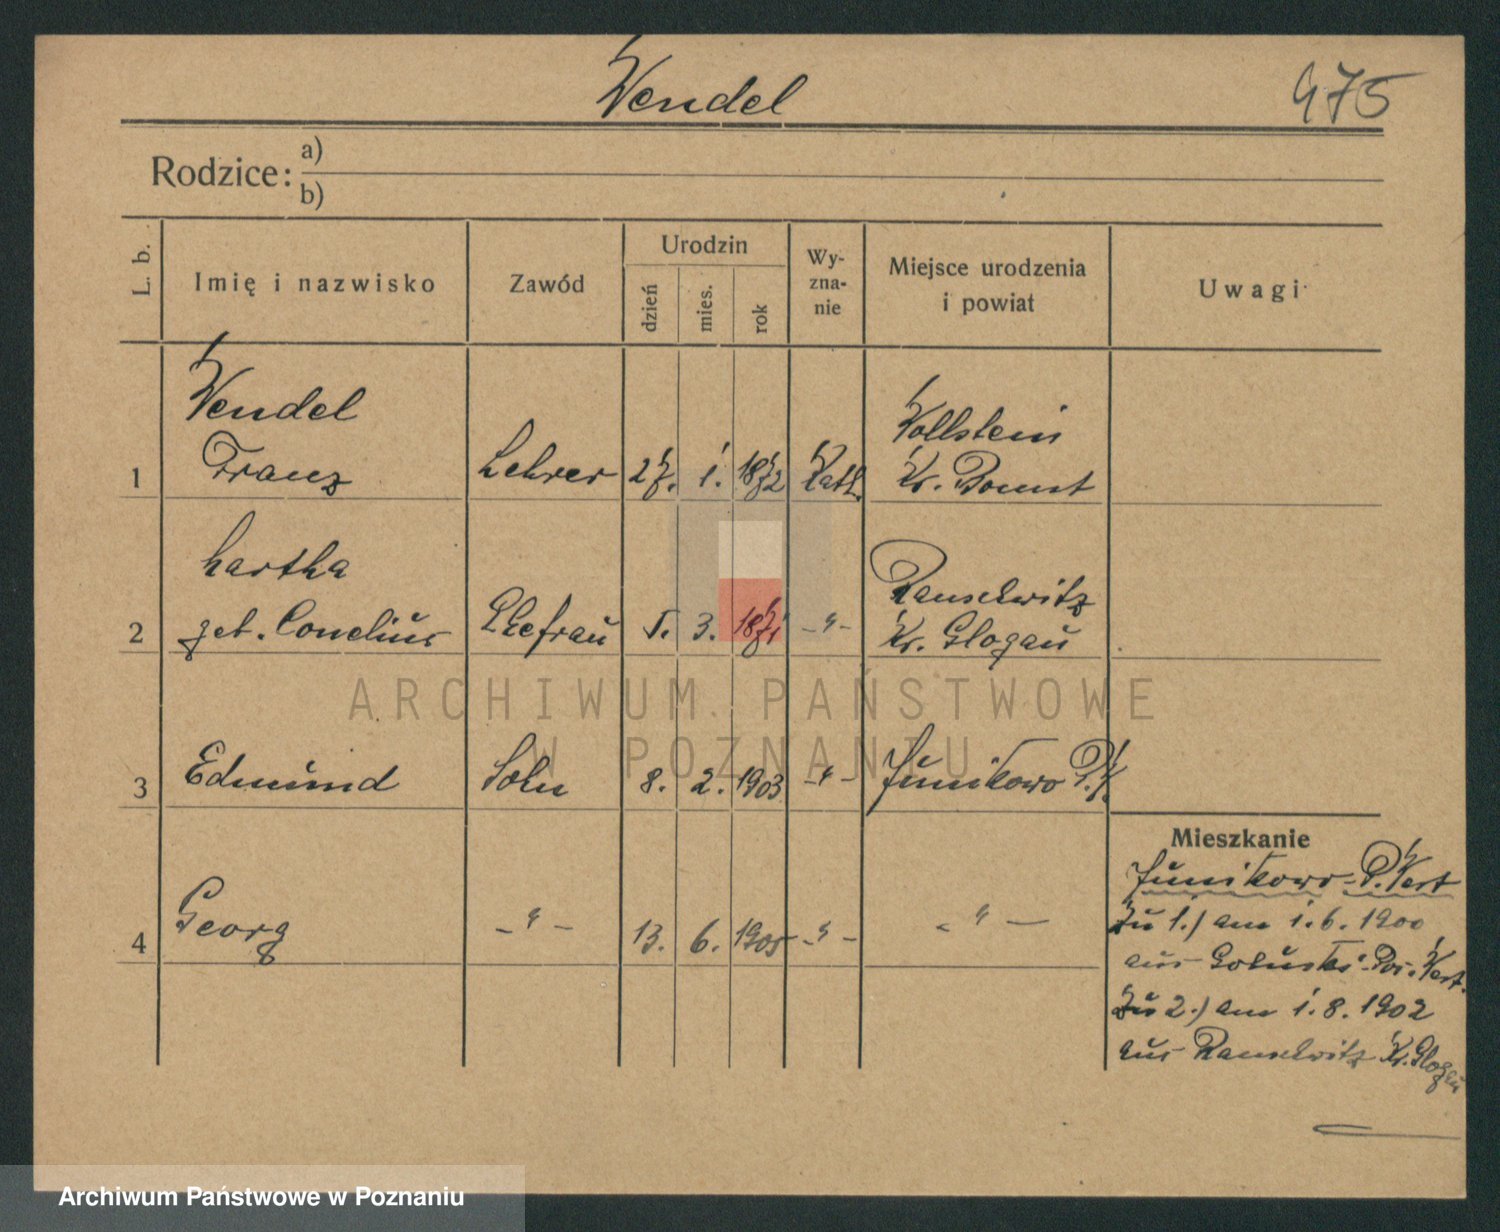 Wendel
475
Rodzice:
a)
b)
L. b.
Imię i nazwisko
Zawód
Urodzin
dzień
mies.
rok
Wy-
zna-
nie
Miejsce urodzenia
i powiat
Uwagi
1
Wendel
Franz
Lehrer
27.
1.
1872
Kath.
Wollstein
Kr. Bomst
2
Martha
geb. Conelius
Ehefrau
5.
3.
1871
-"-
Kr. Glogau
3
Edmund
Sohn
8.
2.
1903
-"-
Junikowo P.W.
4
Georg
-"-
13.
6.
1905
-"-
-"-
Mieszkanie
Junikowo-P. West
Zu 1.) am 1.6.1900
aus Goluski-Pos. West.
Zu 2.) am 1.8.1902
aus Kr. Glogau
ARCHIWUM PAŃSTWOWE
W POZNANIU
Archiwum Państwowe w Poznaniu